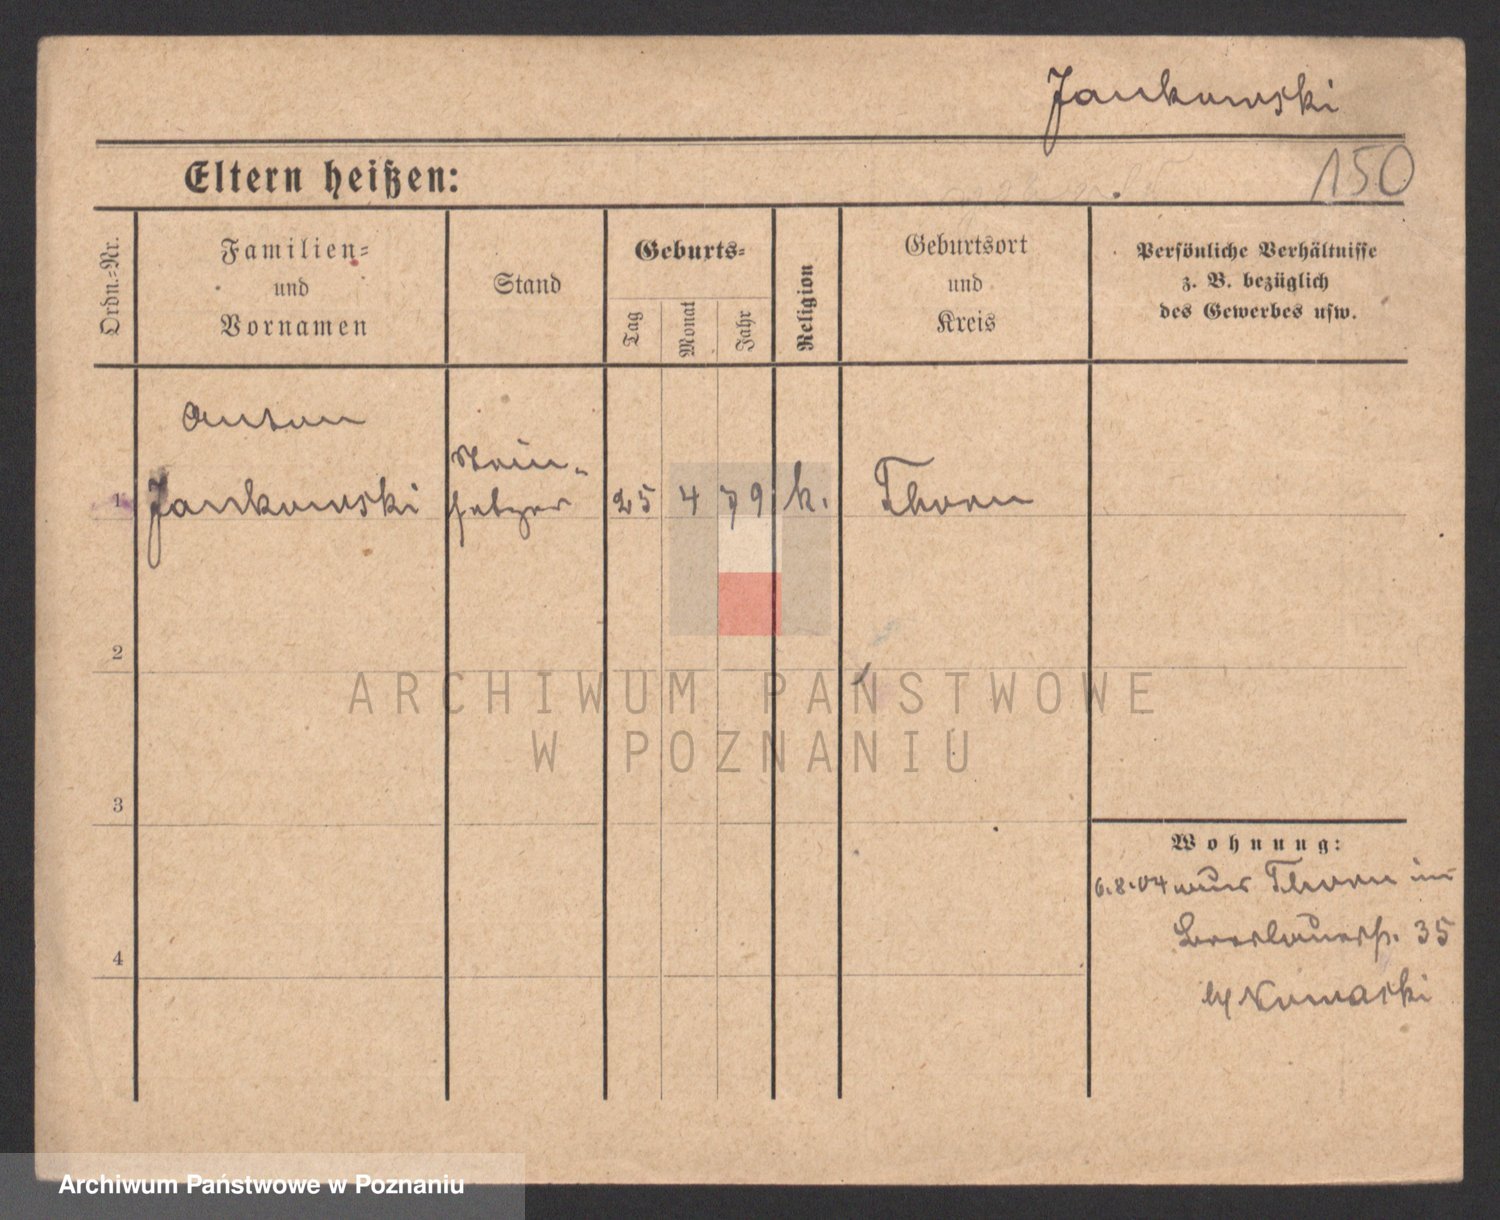 Jankowski
Eltern heißen:
150
Ordn.-Nr.
Familien-
und
Vornamen
Stand
Geburts-
Tag
Monat
Jahr
Religion
Geburtsort
und
Kreis
Persönliche Verhältnisse
z. B. bezüglich
des Gewerbes usw.
Anton
Jankowski
Stein-
setzer
1
25
4
79
k.
Thorn
2
3
4
Wohnung:
6.8.04 aus Thorn in
35
Nowaski
ARCHIWUM PAŃSTWOWE
W POZNANIU
Archiwum Państwowe w Poznaniu